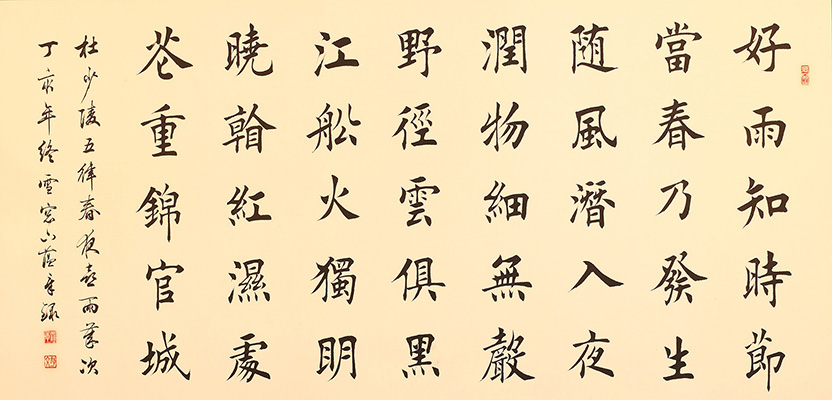 好雨知時節
當春乃發生
随風潛入夜
潤物細無聲
野徑雲俱黑
江舩火獨明
曉看紅濕處
花重錦官城
杜少陵五律春夜喜雨筆次
丁亥年終雪窓